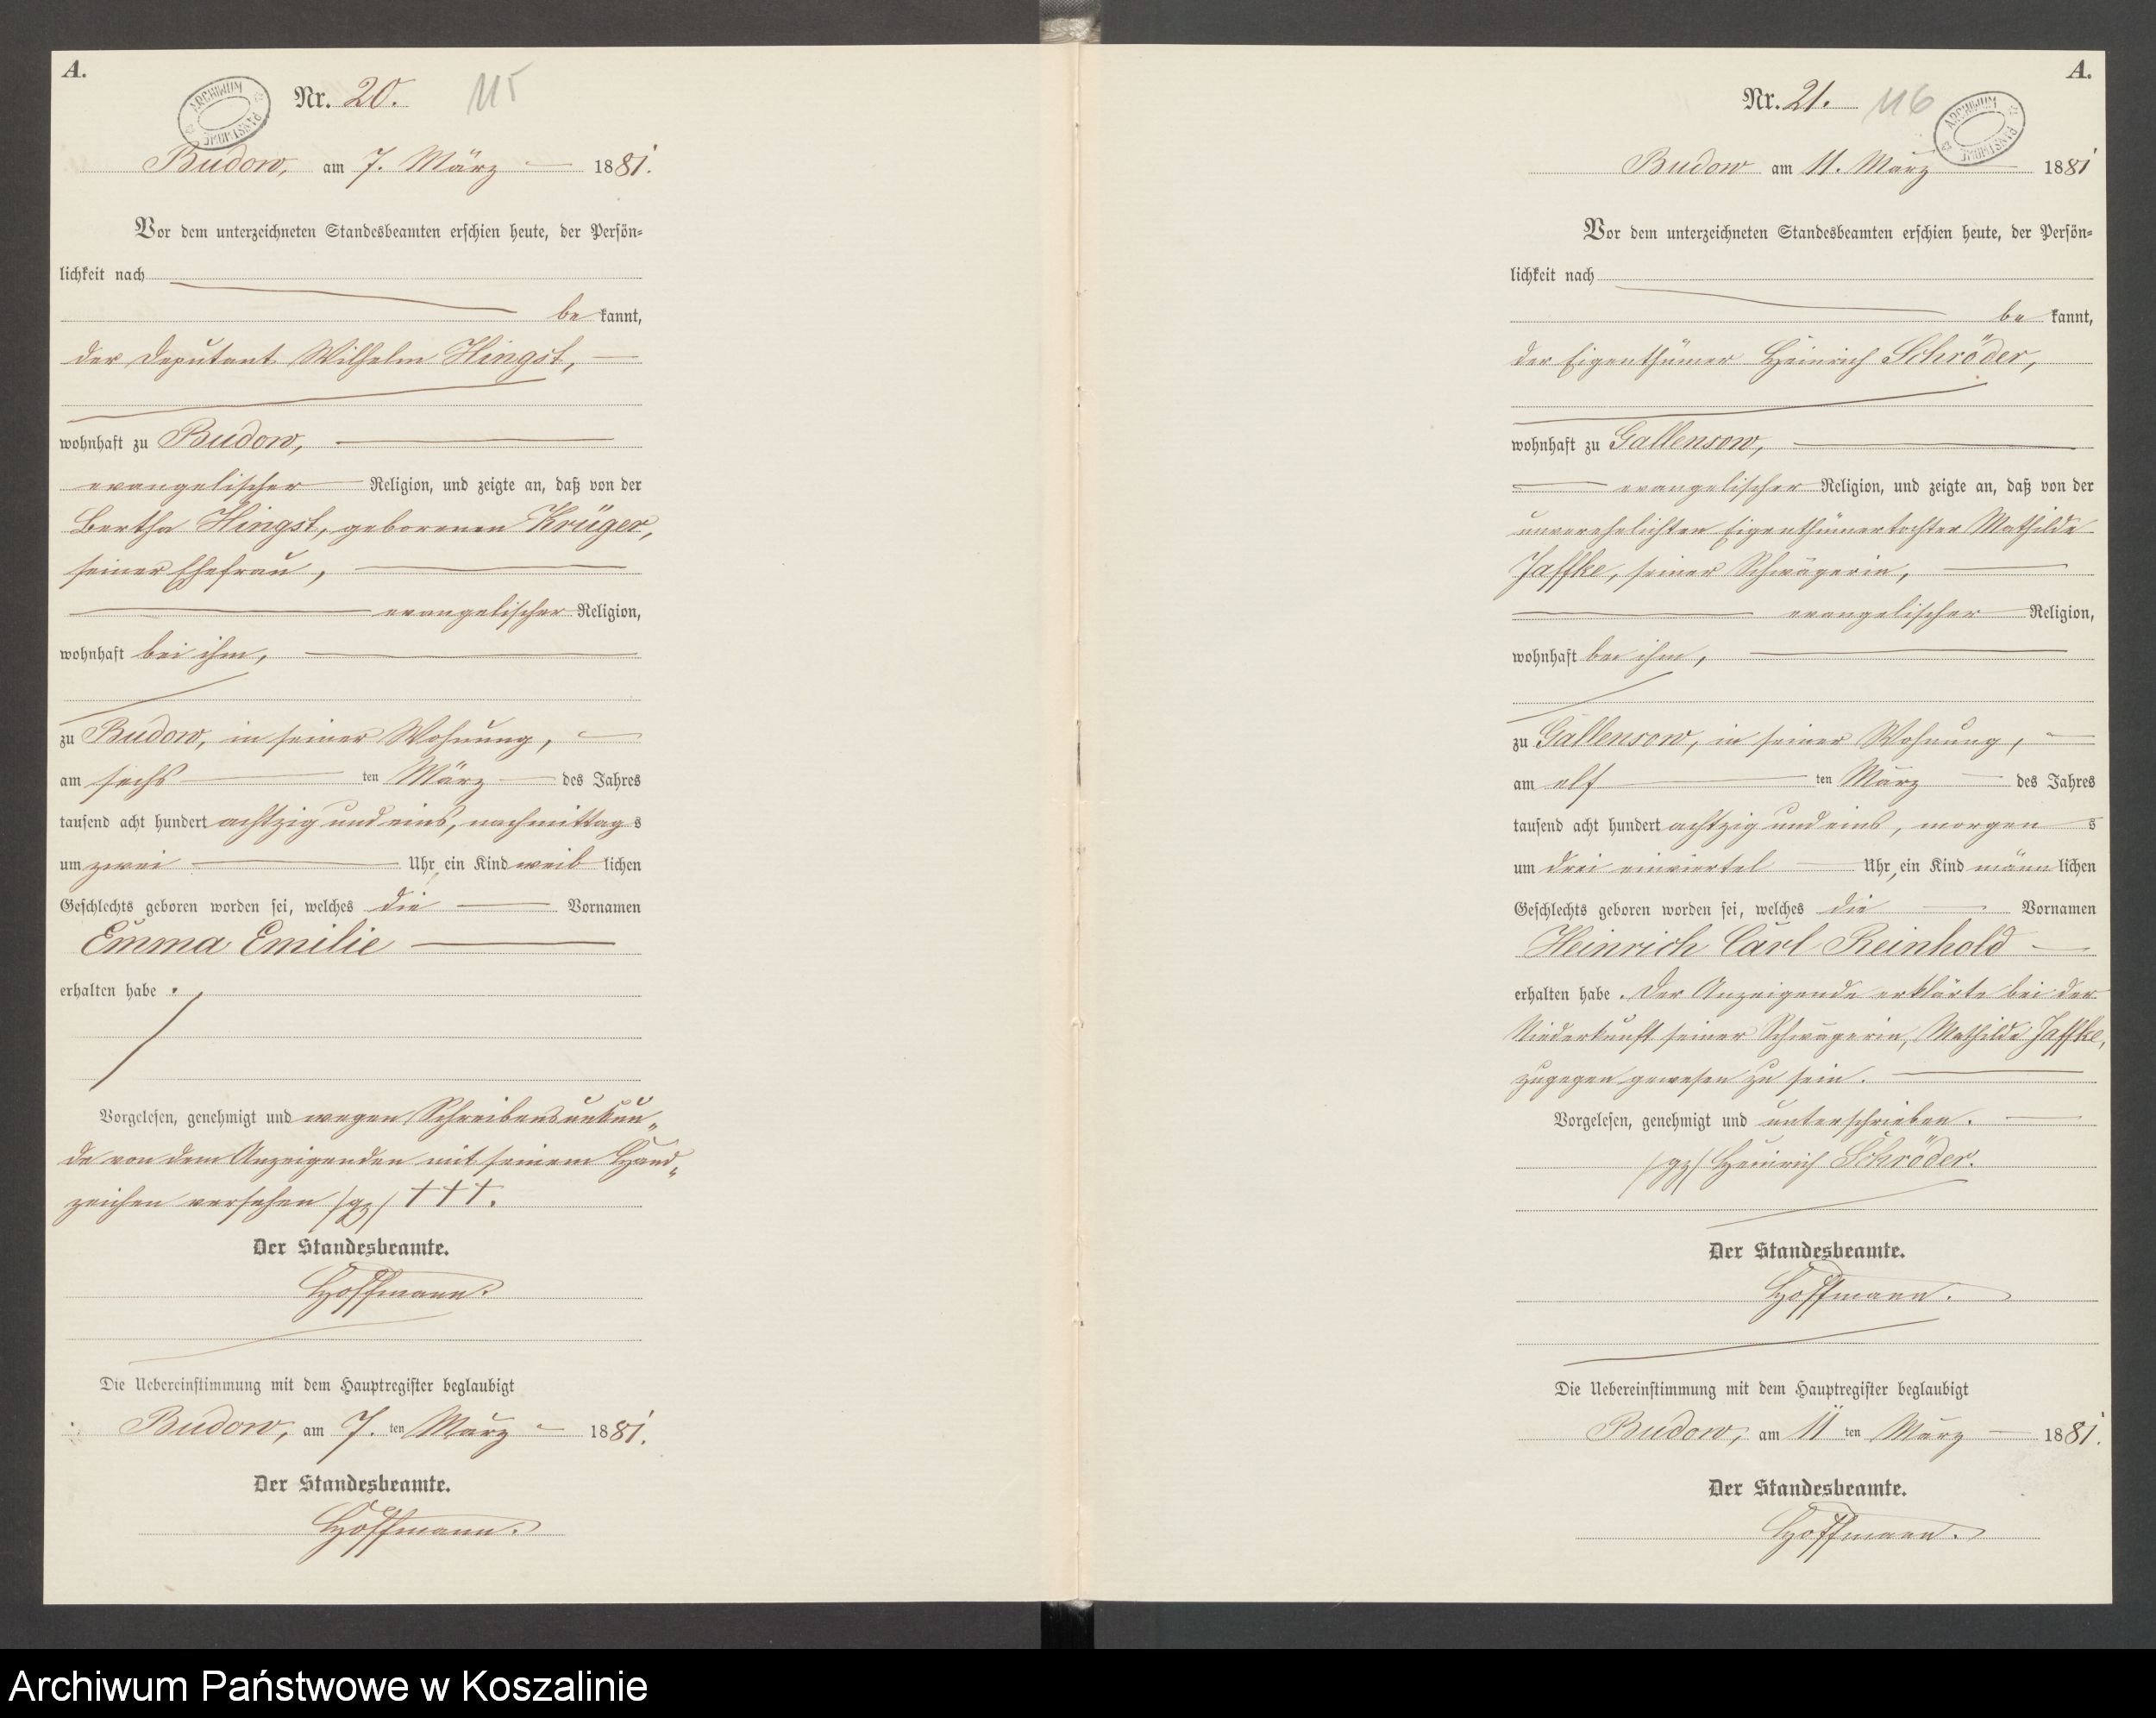 A.
ARCHIWUM PAŃSTWOWE
Nr. 20. 115
Budow, am 7. März 1881.
Vor dem unterzeichneten Standesbeamten erschien heute, der Persön-
lichkeit nach
be kannt,
der Deputant Wilhelm Hingst,
wohnhaft zu Budow,
evangelischer Religion, und zeigte an, daß von der
Bertha Hingst, geborenen Krüger,
seiner Ehefrau,
evangelischer Religion,
wohnhaft bei ihm,
zu Budow, in seiner Wohnung,
am sechs ten März des Jahres
tausend acht hundert achtzig und eins, nachmittag s
um zwei Uhr, ein Kind weib lichen
Geschlechts geboren worden sei, welches die Vornamen
Emma Emilie
erhalten habe.
Vorgelesen, genehmigt und wegen Schreibensunkun„
de von dem Anzeigenden mit seinem Hand„
zeichen versehen /gz/ †††.
Der Standesbeamte.
Hoffmann.
Die Uebereinstimmung mit dem Hauptregister beglaubigt
Budow, am 7. ten März 1881.
Der Standesbeamte.
Hoffmann.
A.
Nr. 21. 116
ARCHIWUM PAŃSTWOWE
Budow am 11. März 1881
Vor dem unterzeichneten Standesbeamten erschien heute, der Persön-
lichkeit nach
be kannt,
der Eigenthümer Heinrich Schröder,
wohnhaft zu Gallensow,
evangelischer Religion, und zeigte an, daß von der
unverehelichten Eigenthümertochter Mathilde
Jaffke, seiner Schwägerin,
evangelischer Religion,
wohnhaft bei ihm,
zu Gallensow, in seiner Wohnung,
am elf ten März des Jahres
tausend acht hundert achtzig und eins, morgen s
um drei einviertel Uhr, ein Kind männ lichen
Geschlechts geboren worden sei, welches die Vornamen
Heinrich Carl Reinhold
erhalten habe. Der Anzeigende erklärte bei der
Niederkunft seiner Schwägerin, Mathilde Jaffke,
zugegen gewesen zu sein.
Vorgelesen, genehmigt und unterschrieben.
/gz/ Heinrich Schröder.
Der Standesbeamte.
Hoffmann.
Die Uebereinstimmung mit dem Hauptregister beglaubigt
Budow, am 11 ten März 1881.
Der Standesbeamte.
Hoffmann.
Archiwum Państwowe w Koszalinie